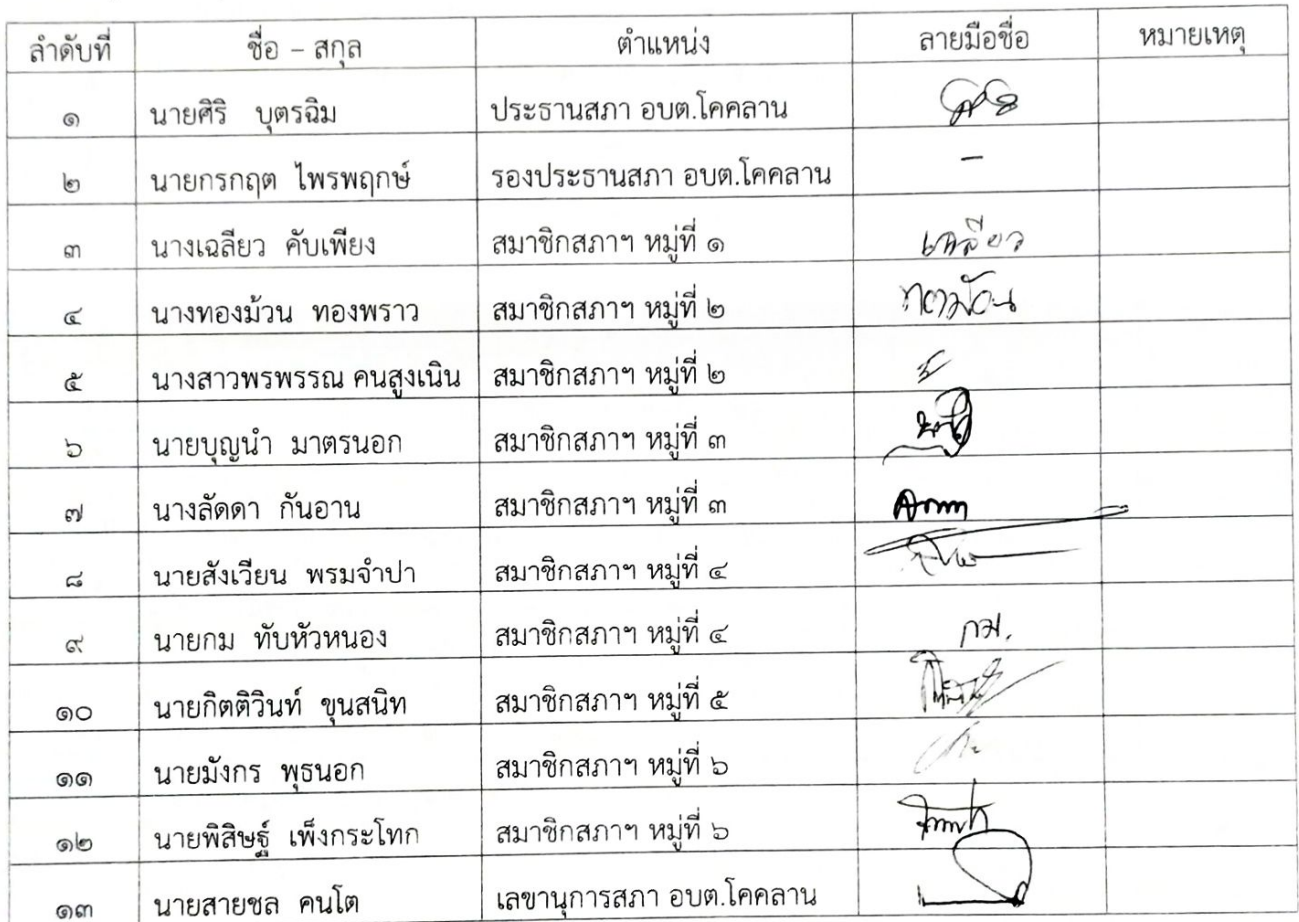 ลำดับที่ ชื่อ – สกุล ตำแหน่ง ลายมือชื่อ หมายเหตุ
๑ นายศิริ บุตรฉิม ประธานสภา อบต.โคคลาน
๒ นายกรกฤต ไพรพฤกษ์ รองประธานสภา อบต.โคคลาน –
๓ นางเฉลียว คับเพียง สมาชิกสภาฯ หมู่ที่ ๑ เฉลียว
๔ นางทองม้วน ทองพราว สมาชิกสภาฯ หมู่ที่ ๒
๕ นางสาวพรพรรณ คนสูงเนิน สมาชิกสภาฯ หมู่ที่ ๒
๖ นายบุญนำ มาตรนอก สมาชิกสภาฯ หมู่ที่ ๓
๗ นางลัดดา กันอาน สมาชิกสภาฯ หมู่ที่ ๓
๘ นายสังเวียน พรมจำปา สมาชิกสภาฯ หมู่ที่ ๔
๙ นายกม ทับหัวหนอง สมาชิกสภาฯ หมู่ที่ ๔ กม.
๑๐ นายกิตติวินท์ ขุนสนิท สมาชิกสภาฯ หมู่ที่ ๕
๑๑ นายมังกร พุธนอก สมาชิกสภาฯ หมู่ที่ ๖
๑๒ นายพิสิษฐ์ เพ็งกระโทก สมาชิกสภาฯ หมู่ที่ ๖
๑๓ นายสายชล คนโต เลขานุการสภา อบต.โคคลาน